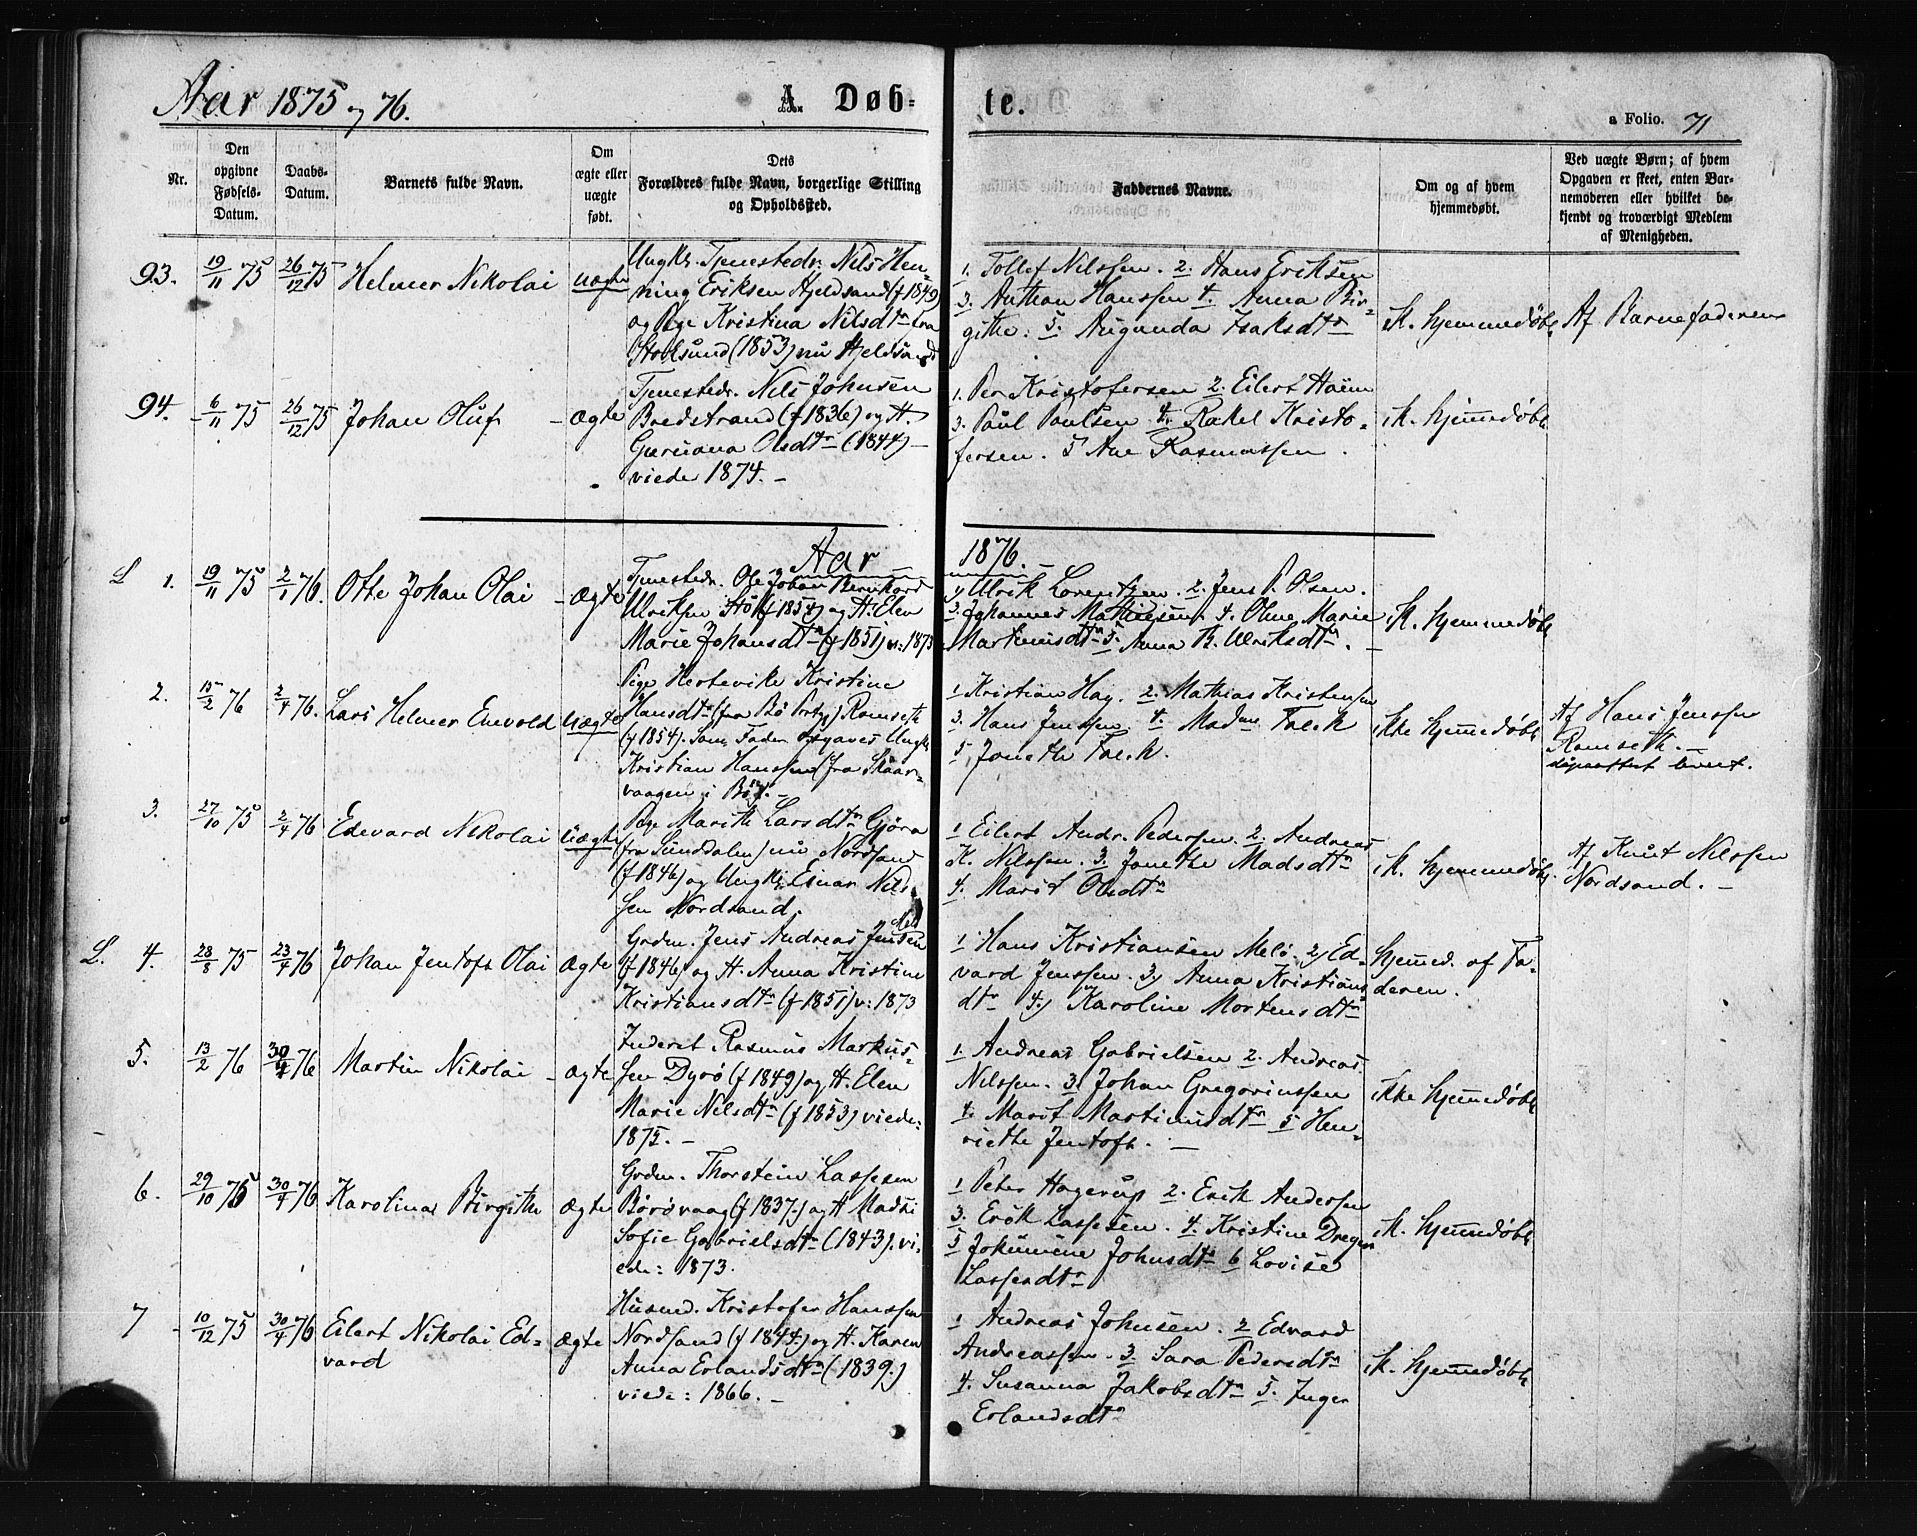 Aar 1875 og 76.
A. Døb-
te.
a Folio. 71
Nr.
Den opgivne Fødsels-Datum.
Daabs-Datum.
Barnets fulde Navn.
Om ægte eller uægte født.
Dets Forældres fulde Navn, borgerlige Stilling og Opholdssted.
Faddernes Navne.
Om og af hvem hjemmedøbt.
Ved uægte Børn; af hvem Opgaven er skeet, enten Barnemoderen eller hvilket bekjendt og troværdigt Medlem af Menigheden.
93. 19/11 75 26/12 75 Helmer Nikolai uægte
Ungkr. Tjenestedr. Nils Hen-
ning Eriksen Hjeldsand (f 1849)
og Pige Kristina Nilsdtr fra
Stoksund (1853) nu Hjeldsand
1. Tollef Nilssen. 2. Hans Eriksen
3. Anthon Hanssen 4. Anna Bir-
githe. 5. Augunda Isaksdtr
ik. hjemmedøbt
Af Barnefaderen
94. 6/11 75 26/12 75 Johan Oluf - ægte
Tjenestedr. Nils Johnsen
Bredstrand (f 1836) og H.
Olsdtr (1844) -
viede 1874. -
1. Per Kristofersen 2. Eilert
3. Paul Paulsen 4. Rakel Kristo-
fersen. 5 Ane Rasmussen.
ik. hjemmedøbt
Aar 1876.
L 1. 19/11 75 2/1 76. Otte Johan Olai - ægte
Tjenestedr. Ole Johan Bernhard
Ulriksen Stø (f 1854) og H. Elen
Marie Johansdtr (f 1851) v: 1873
1 Ulrik Lorentzen. 2. Jens P. Olsen.
3. Johannes Mathiesen 4. Oline Marie
Martinusdtr 5. Anna B. Ulriksdtr. -
ik. hjemmedøbt
2. 15/2 76 2/4 76. Lars Helmer Enevold uægte
Pige Hertevike Kristine
Hansdtr (fra Bø) Ramseth
(f 1854). Som Fader opgaves Ungk
Kristian Hanssen (fra Skaar-
vaagen i Bø). -
1 Kristian Hay. 2. Mathias Kristensen
3. Hans Jenssen 4. Madam Falck
5 Janeth Falck.
ikke hjemmedøbt
Af Hans Jenssen
Ramseth. -
3. 27/10 75 2/4 76 Edevard Nikolai uægte
Pige Marith Larsdtr Gjøra
(fra Sunddalen) nu Nordsand
(f 1846) og Ungkr. Einar Nils-
sen Nordsand.
1 Eilert Andr. Pedersen. 2. Andreas
K. Nilssen. 3. Janethe Madsdtr
4. Marit Olsdtr
ik. hjemmedøbt.
Af Knut Nilssen
Nordsand. -
L. 4. 28/8 75 23/4 76 Johan Jentoft Olai ægte
Grdm. Jens Andreas Jensen Melø
(f 1846) og H. Anna Kristine
Kristiansdtr (f 1851) v: 1873
1 Hans Kristiansen Melø. 2) Ed-
vard Jenssen. 3) Anna Kristians
dtr 4) Karoline Mortensdtr
hjemmed. af Fa-
deren.
5. 13/2 76 30/4 76 Martin Nikolai - ægte
Inderst Rasmus Markus-
sen Dyrø (f 1849) og H. Elen
Marie Nilsdtr (f 1853) viede:
1875. -
1. Andreas Gabrielsen 2. Andreas
Nilssen. 3. Johan Gregoriussen
4. Marit Martinusdtr 5 Hen-
riethe Jentoft. -
ikke hjemmedøbt
6. 29/10 75 30/4 76 Karolina Birgithe ægte
Grdm. Thorstein Lassesen
Børøvaag (f 1837) og H Madsi
Sofie Gabrielsdtr (1843). vi-
ede: 1873.
1 Peter Hagerup 2. Erik Andersen
3. Erik Lassesen. 4. Kristine Dreyer
5 Jokumine Johnsdtr 6 Lovise
Lassesdtr
ik. hjemmedøbt
7 - 10/12 75 30/4 76 Eilert Nikolai Ed-
vard
ægte
Husmd. Kristofer Hanssen
Nordsand (f 1844) og H. Karen
Anna Erlandsdtr (1839.)
viede: 1866. -
1 Andreas Johnsen. 2 Edvard
Andreassen. 3 Sara Pedersdtr
4. Susanna Jakobsdtr 5. Inger
Erlandsdtr
ik. hjemmedøbt